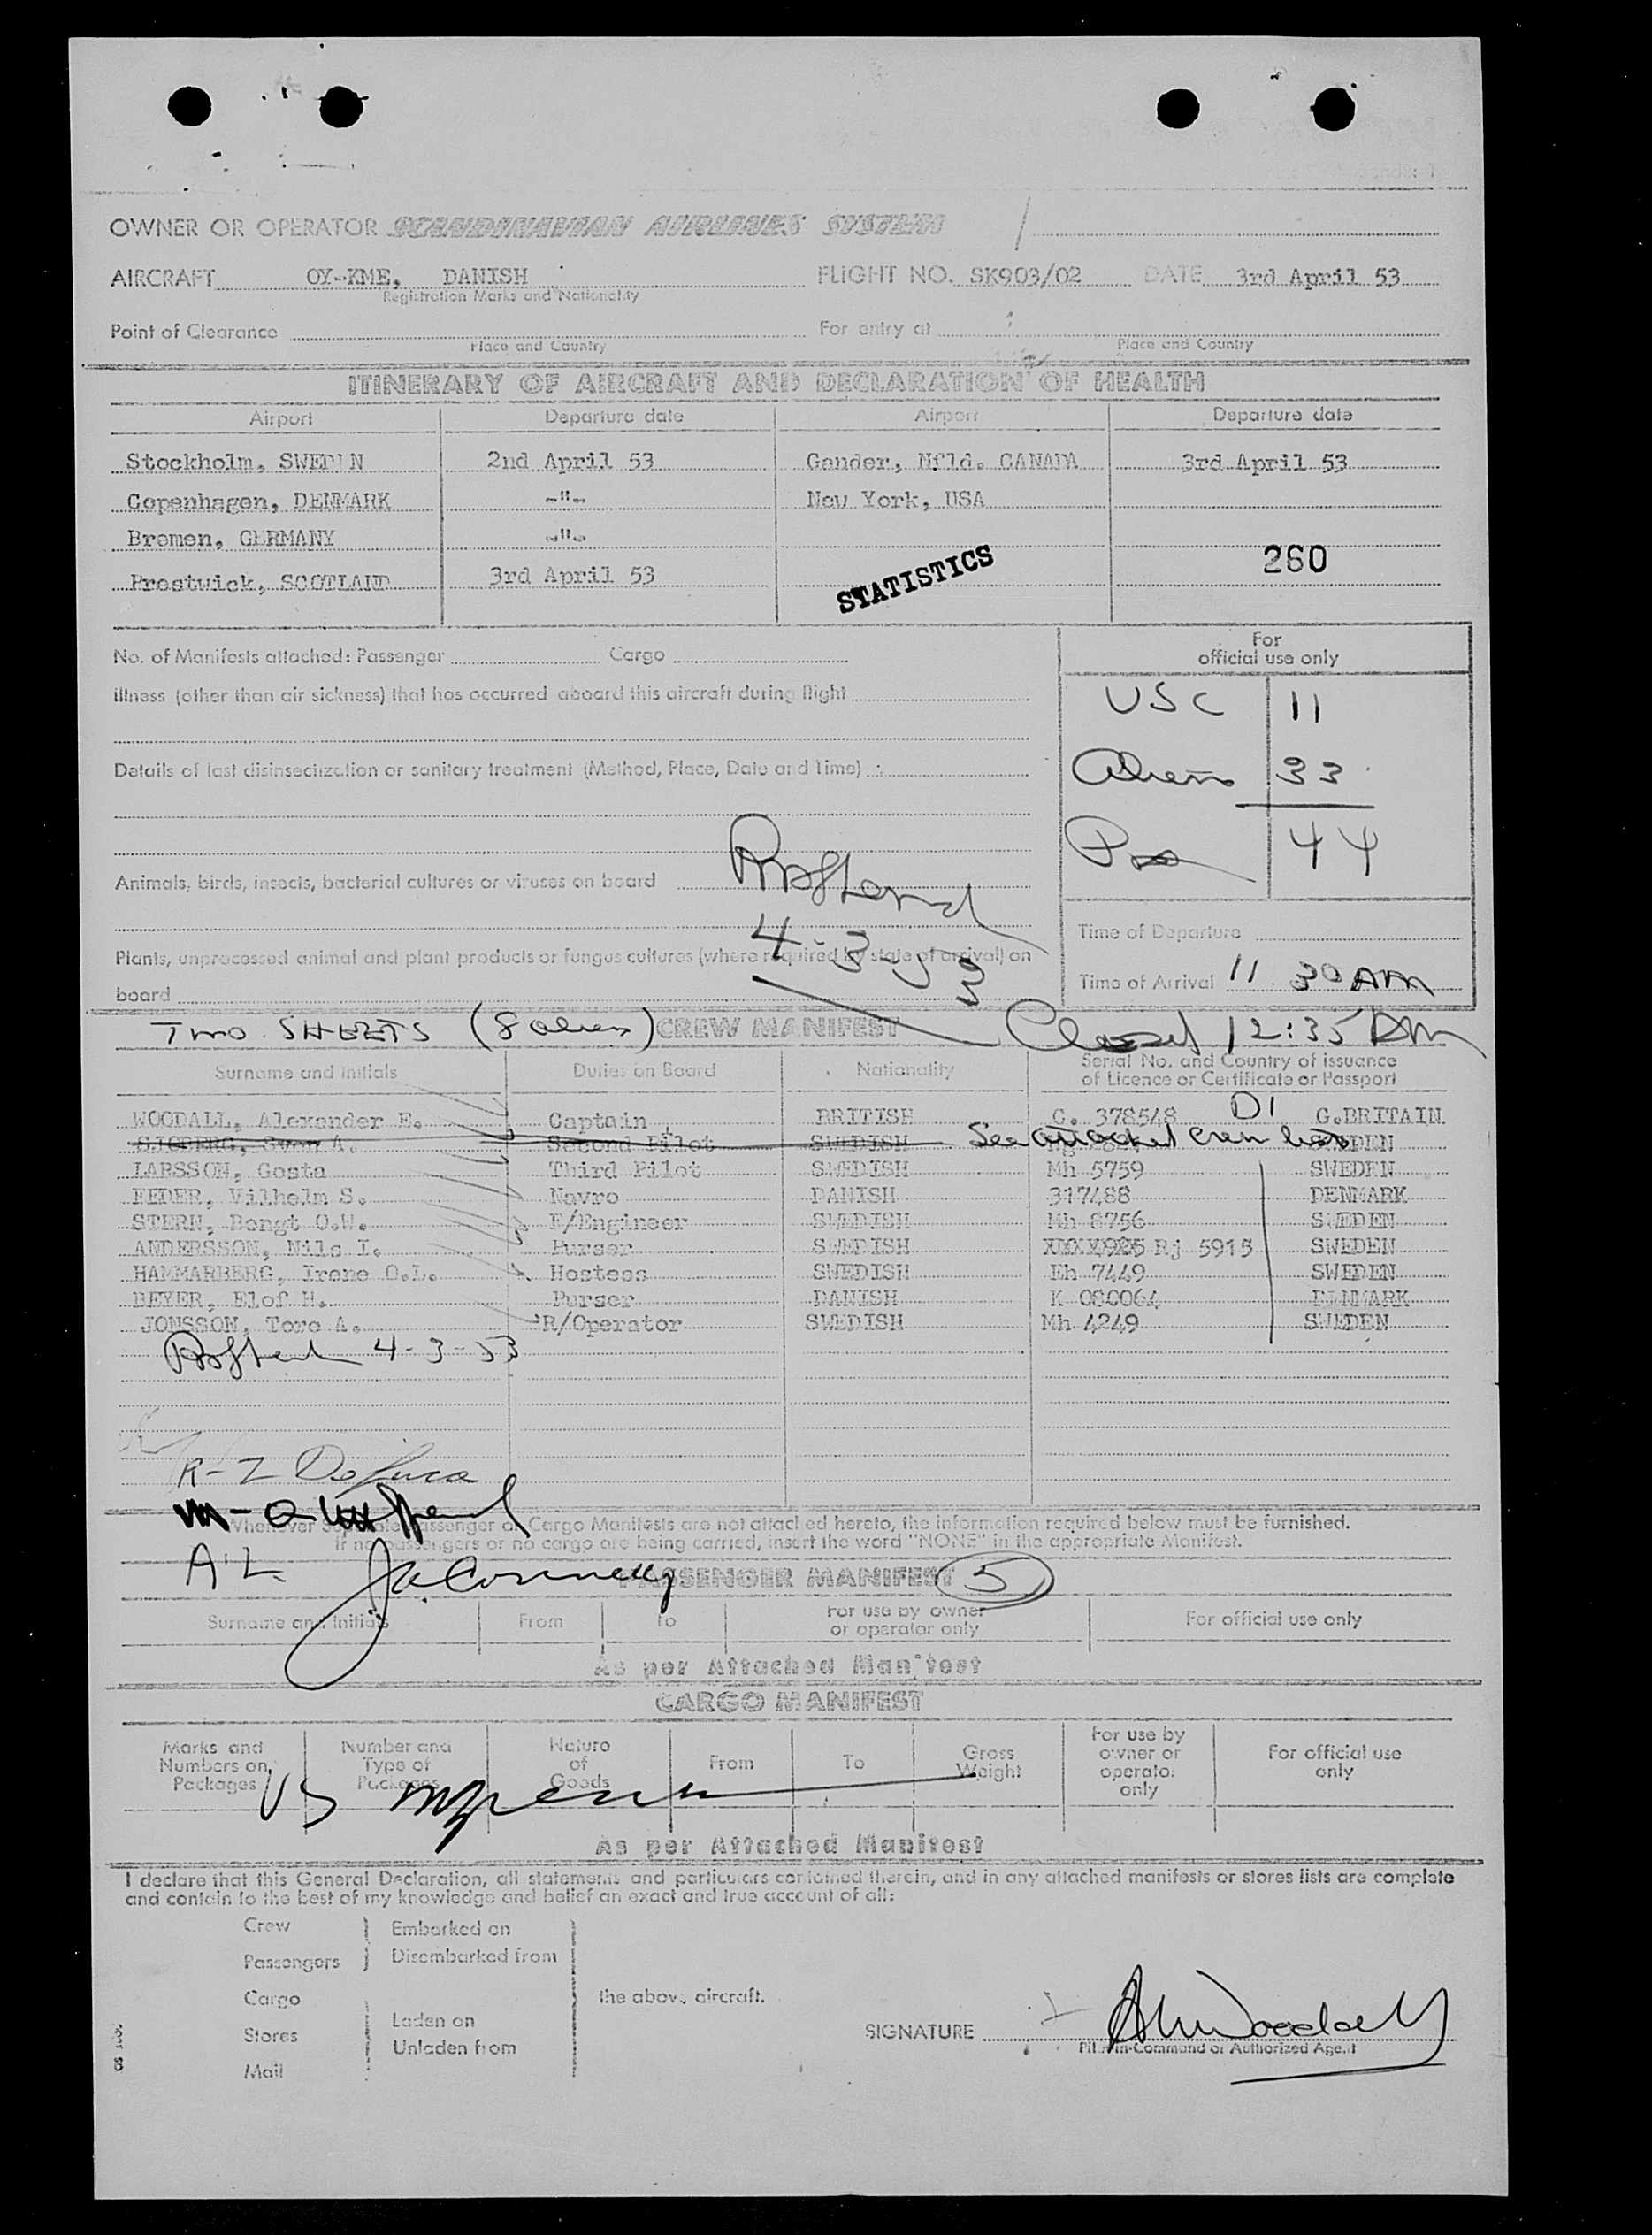 OWNER OR OPERATOR SCANDINAVIAN AIRLINES SYSTEM
AIRCRAFT OY-KME, DANISH FLIGHT NO. SK903/02 DATE 3rd April 53
Registration Marks and Nationality
Point of Clearance For entry at
Place and Country Place and Country
ITINERARY OF AIRCRAFT AND DECLARATION OF HEALTH
Airport Departure date Airport Departure date
Stockholm, SWEDEN 2nd April 53 Gander, Nfld. CANADA 3rd April 53
Copenhagen, DENMARK -"- New York, USA
Bremen, GERMANY -"-
Prestwick, SCOTLAND 3rd April 53 STATISTICS 260
No. of Manifests attached: Passenger Cargo
For official use only
Illness (other than air sickness) that has occurred aboard this aircraft during flight
USC 11
Details of last disinsectization or sanitary treatment (Method, Place, Date and Time)
Aliens 33
44
Animals, birds, insects, bacterial cultures or viruses on board
4-3-53
Time of Departure
Plants, unprocessed animal and plant products or fungus cultures (where required by state of arrival) on
board
Time of Arrival 11 30 AM
TWO SHEETS (8 aliens) CREW MANIFEST Closed 12:35 PM
Surname and Initials Duties on Board Nationality Serial No. and Country of issuance
of Licence or Certificate or Passport
WOODALL, Alexander E. Captain BRITISH C. 378548 D1 G.BRITAIN
SJOBERG, Sven A. Second Pilot SWEDISH See attached crew list SWEDEN
LARSSON, Gosta Third Pilot SWEDISH Mh 5759 SWEDEN
FEDER, Vilhelm S. Navro DANISH 317488 DENMARK
STERN, Bengt O.W. F/Engineer SWEDISH Mh 8756 SWEDEN
ANDERSSON, Nils I. Purser SWEDISH Rj 5915 SWEDEN
HAMMARBERG, Irene O.L. Hostess SWEDISH Eh 7449 SWEDEN
BEYER, Elof H. Purser DANISH K 080064 DENMARK
JONSSON, Tore A. R/Operator SWEDISH Mh 4249 SWEDEN
4-3-53
R-Z DeLuca
Whenever Separate Passenger or Cargo Manifests are not attached hereto, the information required below must be furnished.
If no passengers or no cargo are being carried, insert the word "NONE" in the appropriate Manifest.
A-L
PASSENGER MANIFEST 5
Surname and Initials From To For use by owner or operator only For official use only
As per Attached Manifest
CARGO MANIFEST
Marks and Numbers on Packages Number and Type of Packages Nature of Goods From To Gross Weight For use by owner or operator only For official use only
As per Attached Manifest
I declare that this General Declaration, all statements and particulars contained therein, and in any attached manifests or stores lists are complete
and contain to the best of my knowledge and belief an exact and true account of all:
Crew Embarked on
Passengers Disembarked from
Cargo the above aircraft.
Stores Laden on
Unladen from
Mail
SIGNATURE AWoodall
Pilot-in-Command or Authorized Agent